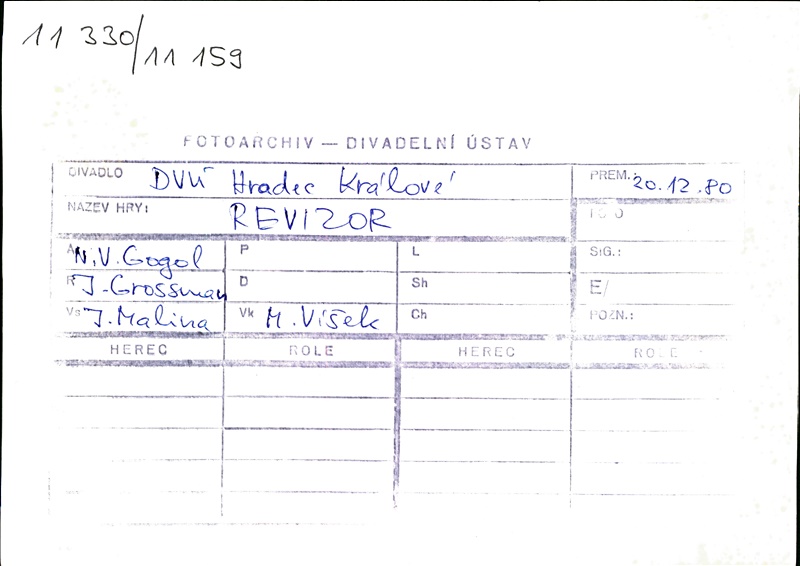 11 330/11 159
FOTOARCHIV — DIVADELNÍ ÚSTAV
DIVADLO DVÚ Hradec Králové PREM.: 20.12.80
NÁZEV HRY: REVIZOR IČO
A N.V. Gogol P L SIG.:
R J. Grossman D Sh E/
Vs J. Malina Vk M. Víšek Ch POZN.:
HEREC ROLE HEREC ROLE